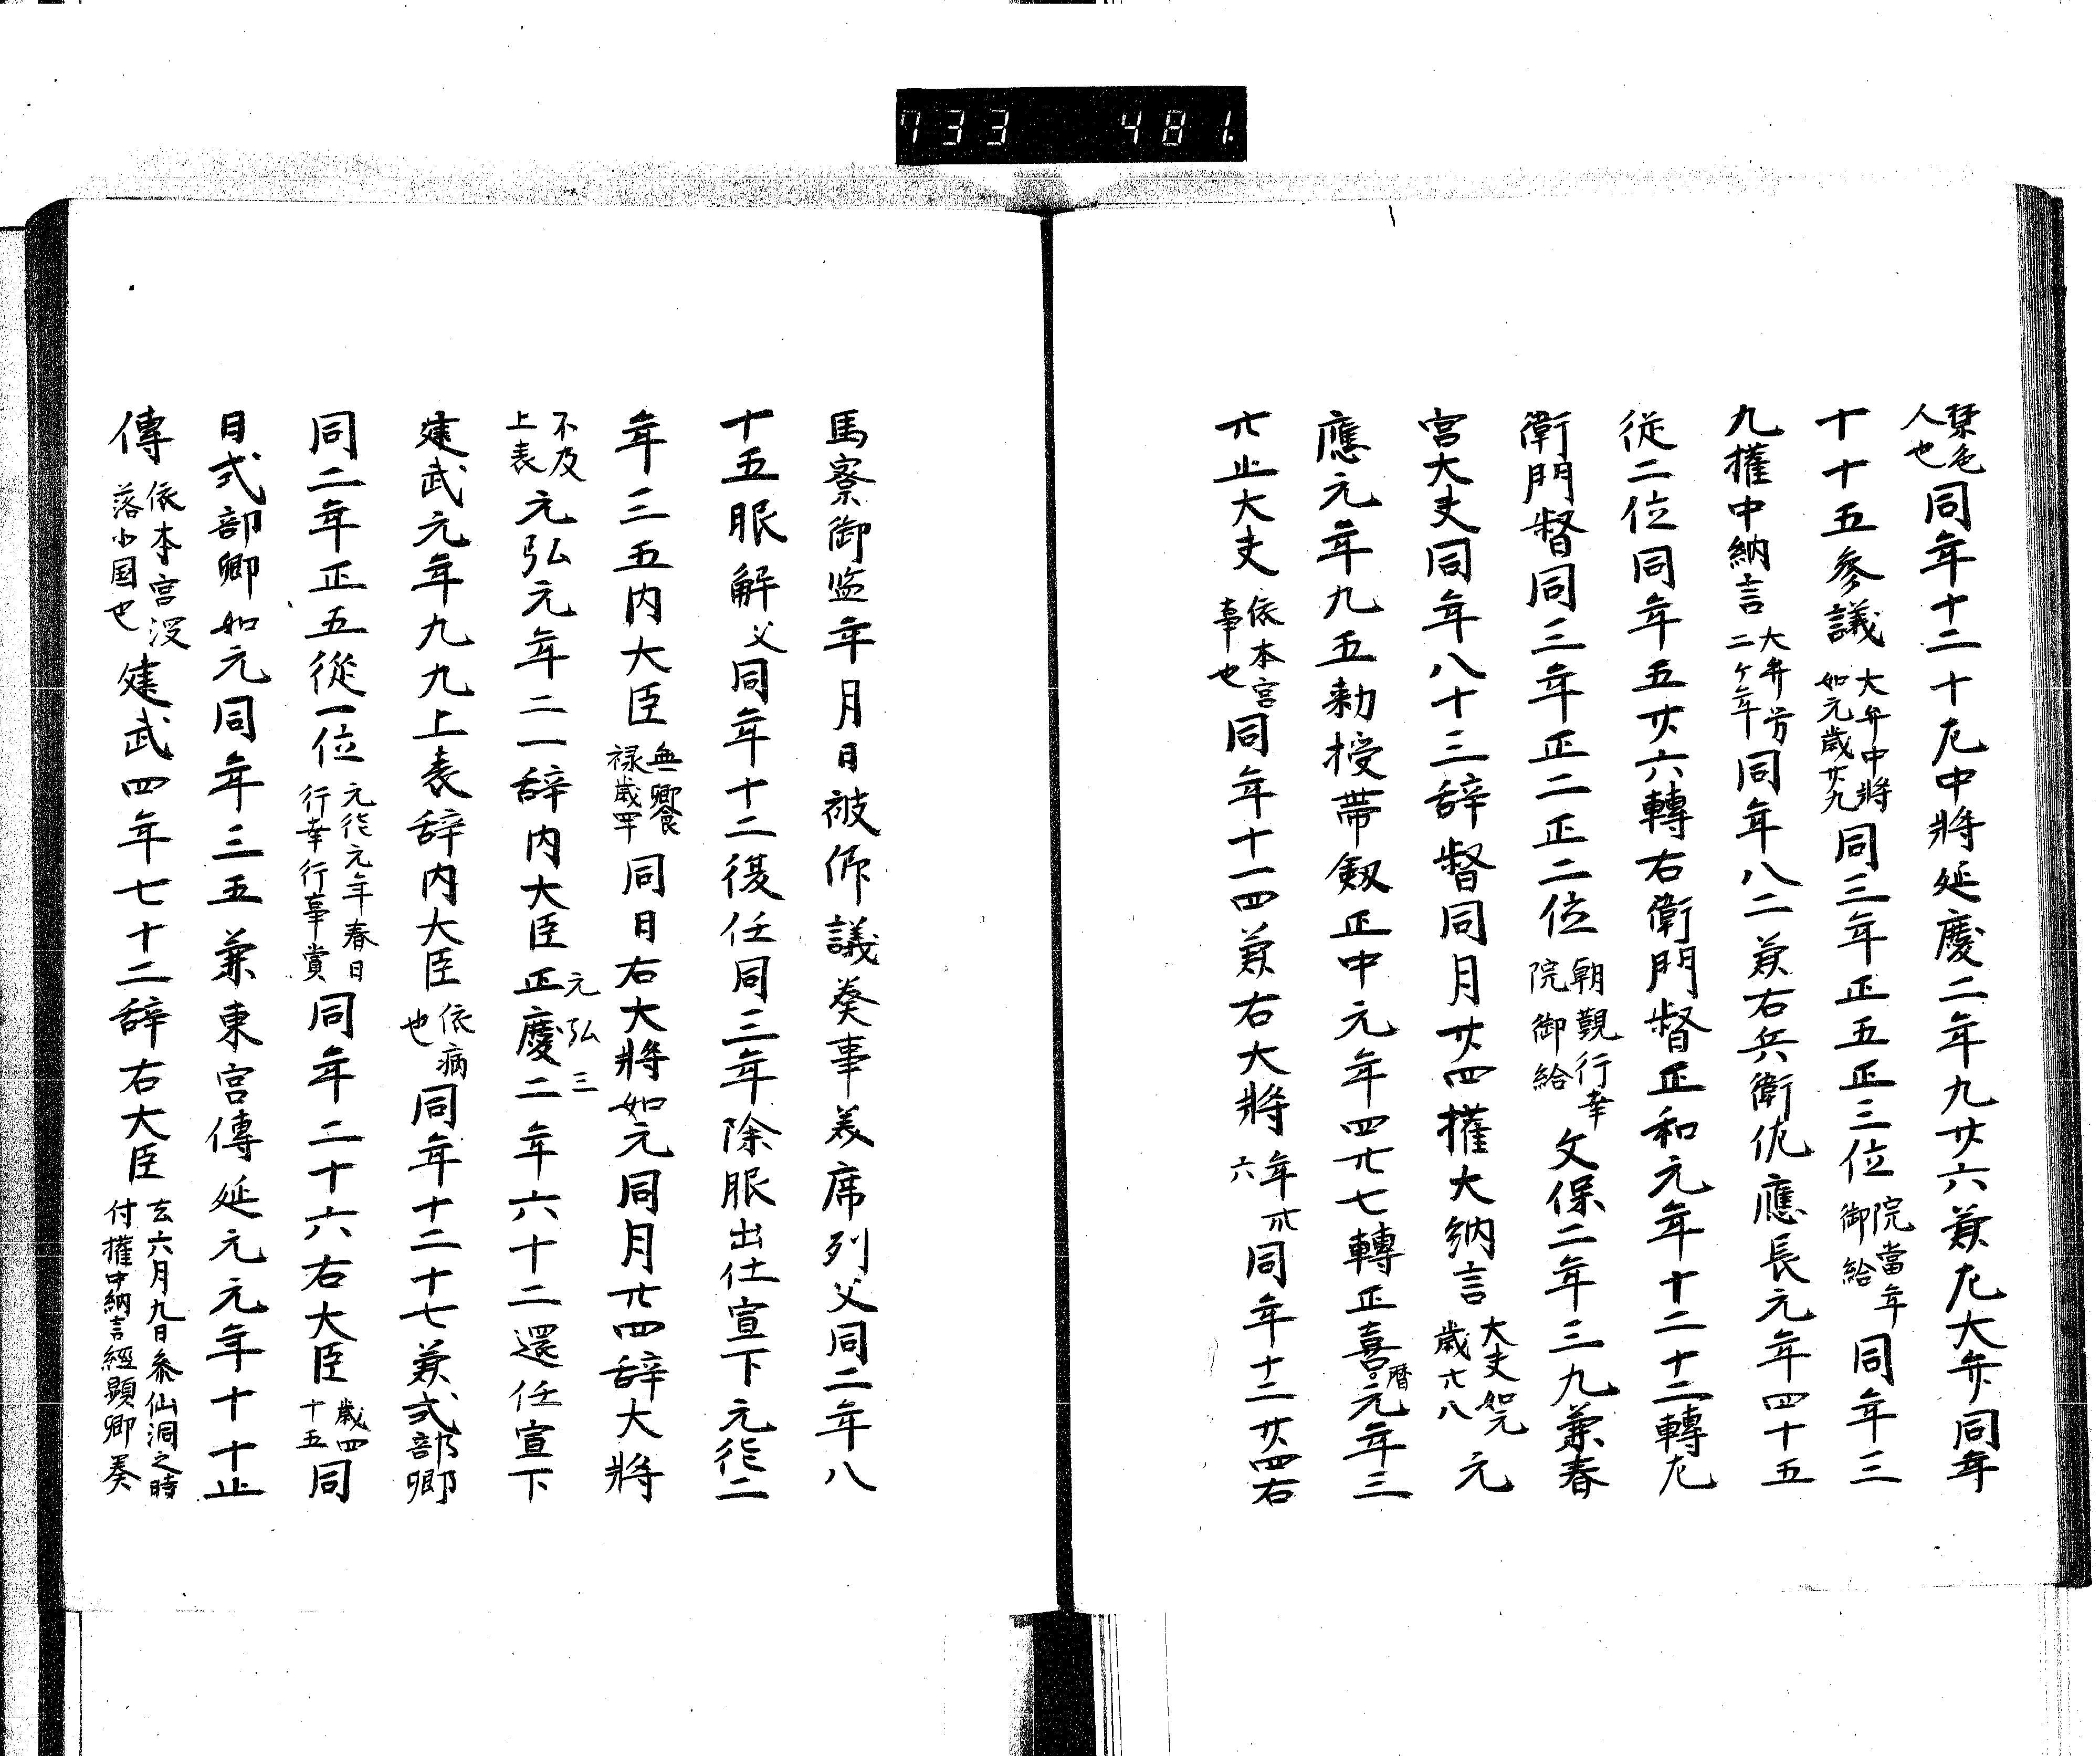 733 481
禁色人也同年十二十左中將延慶二年九廿六兼左大弁同年
十十五參議大弁中將如元歲廿九同三年正五正三位院當年御給同年三
九權中納言大弁労二ケ年同年八二兼右兵衛佐應長元年四十五
從二位同年五廿六轉右衛門督正和元年十二十二轉左
衛門督同三年正二正二位朝覲行幸院御給文保二年三九兼春
宮大夫同年八十三辞督同月廿四權大納言大夫如元歲卅八元
應元年九五勅授帶劔正中元年四廿七轉正嘉暦元年三
廿止大夫依本宮事也同年十一四兼右大將年卌六同年十二廿四右
馬寮御監年月日被仰議奏事着席列父同二年八
十五服解父同年十二復任同三年除服出仕宣下元德二
年三五内大臣無饗禄歲卌同日右大將如元同月廿四辞大將
不及上表元弘元年二一辞内大臣正慶元弘三二年六十二還任宣下
建武元年九九上表辞内大臣依病也同年十二十七兼式部卿
同二年正五從一位元德元年春日行幸行事賞同年二十六右大臣歲四十五同
日式部卿如元同年三五兼東宮傳延元元年十十止
傳依本宮没落小国也建武四年七十二辞右大臣去六月九日參仙洞之時付權中納言經顯卿奏